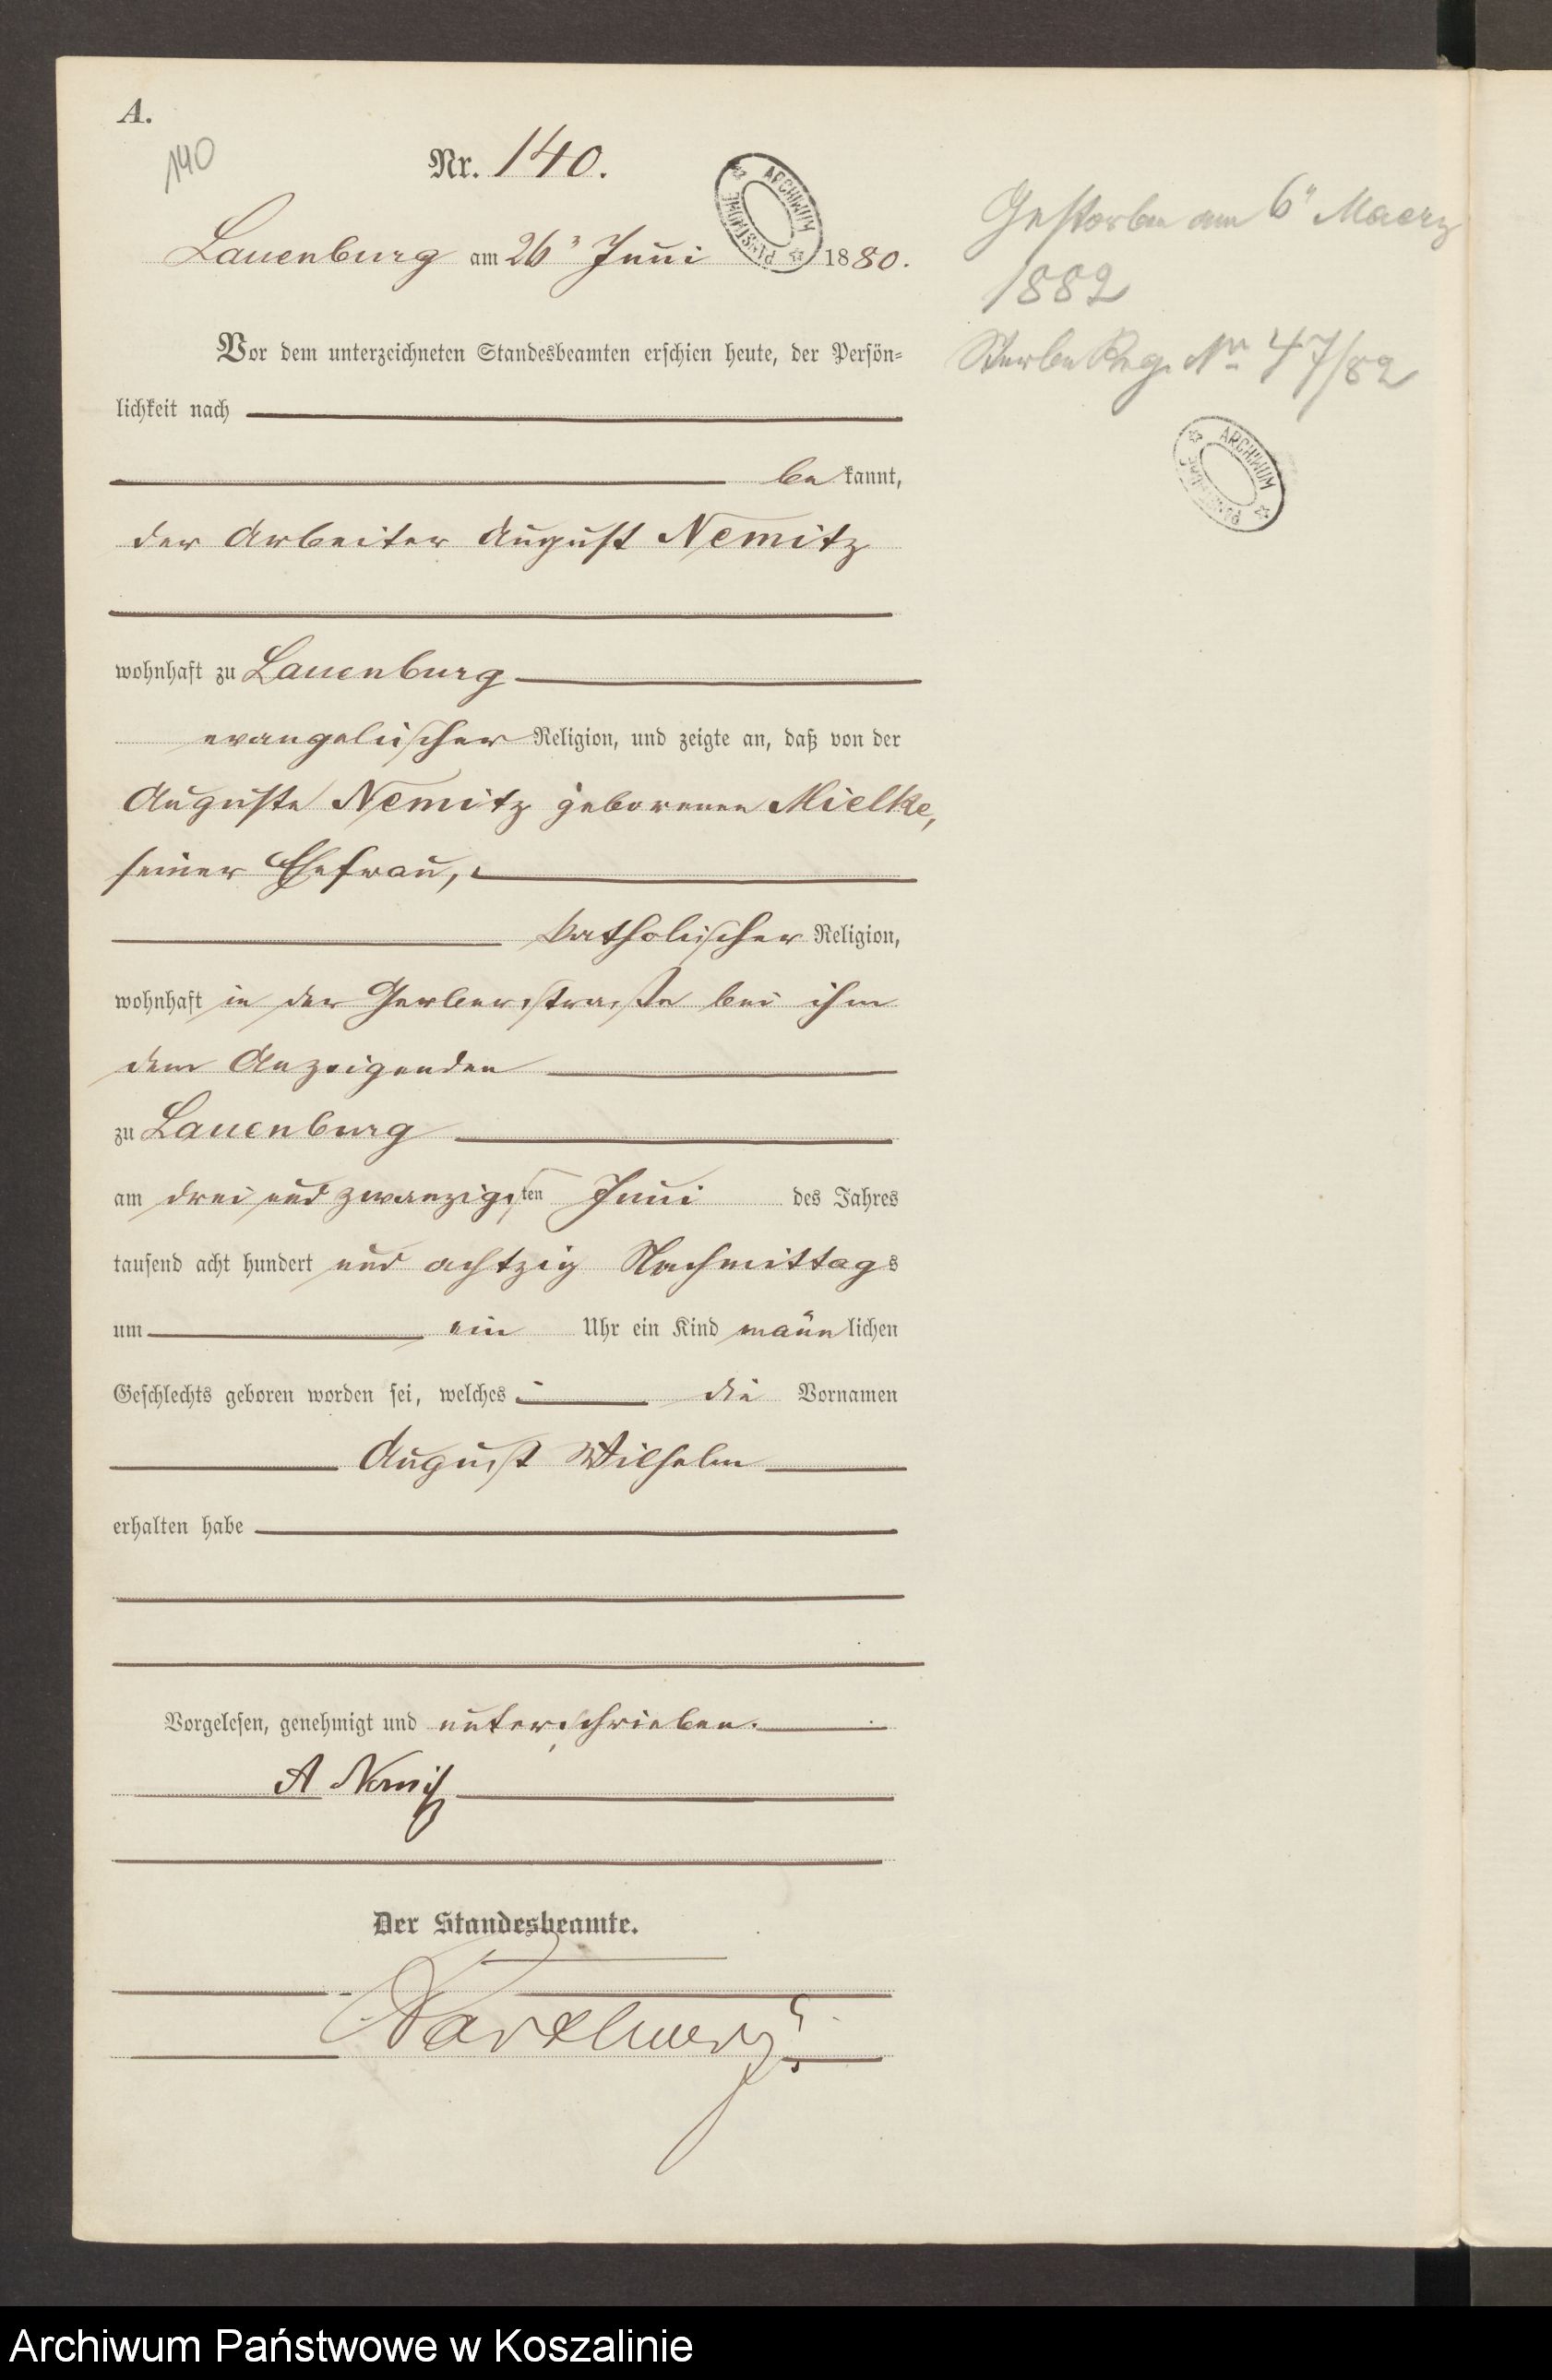 A.
140
Nr. 140.
ARCHIWUM PAŃSTWOWE
Lauenburg am 26 Juni 1880.
Vor dem unterzeichneten Standesbeamten erschien heute, der Persön-
lichkeit nach
bekannt,
der Arbeiter August Nemitz
wohnhaft zu Lauenburg
evangelischer Religion, und zeigte an, daß von der
Auguste Nemitz geborenen Mielke,
seiner Ehefrau,
katholischer Religion,
wohnhaft in der Gerberstraße bei ihm
dem Anzeigenden
zu Lauenburg
am drei und zwanzigsten Juni des Jahres
tausend acht hundert und achtzig Nachmittags
um ein Uhr ein Kind männlichen
Geschlechts geboren worden sei, welches die Vornamen
August Wilhelm
erhalten habe
Vorgelesen, genehmigt und unterschrieben.
A Nemitz
Der Standesbeamte.
Gestorben am 6" Maerz
1882
Sterbe Reg. Nr 47/82
ARCHIWUM PAŃSTWOWE
Archiwum Państwowe w Koszalinie